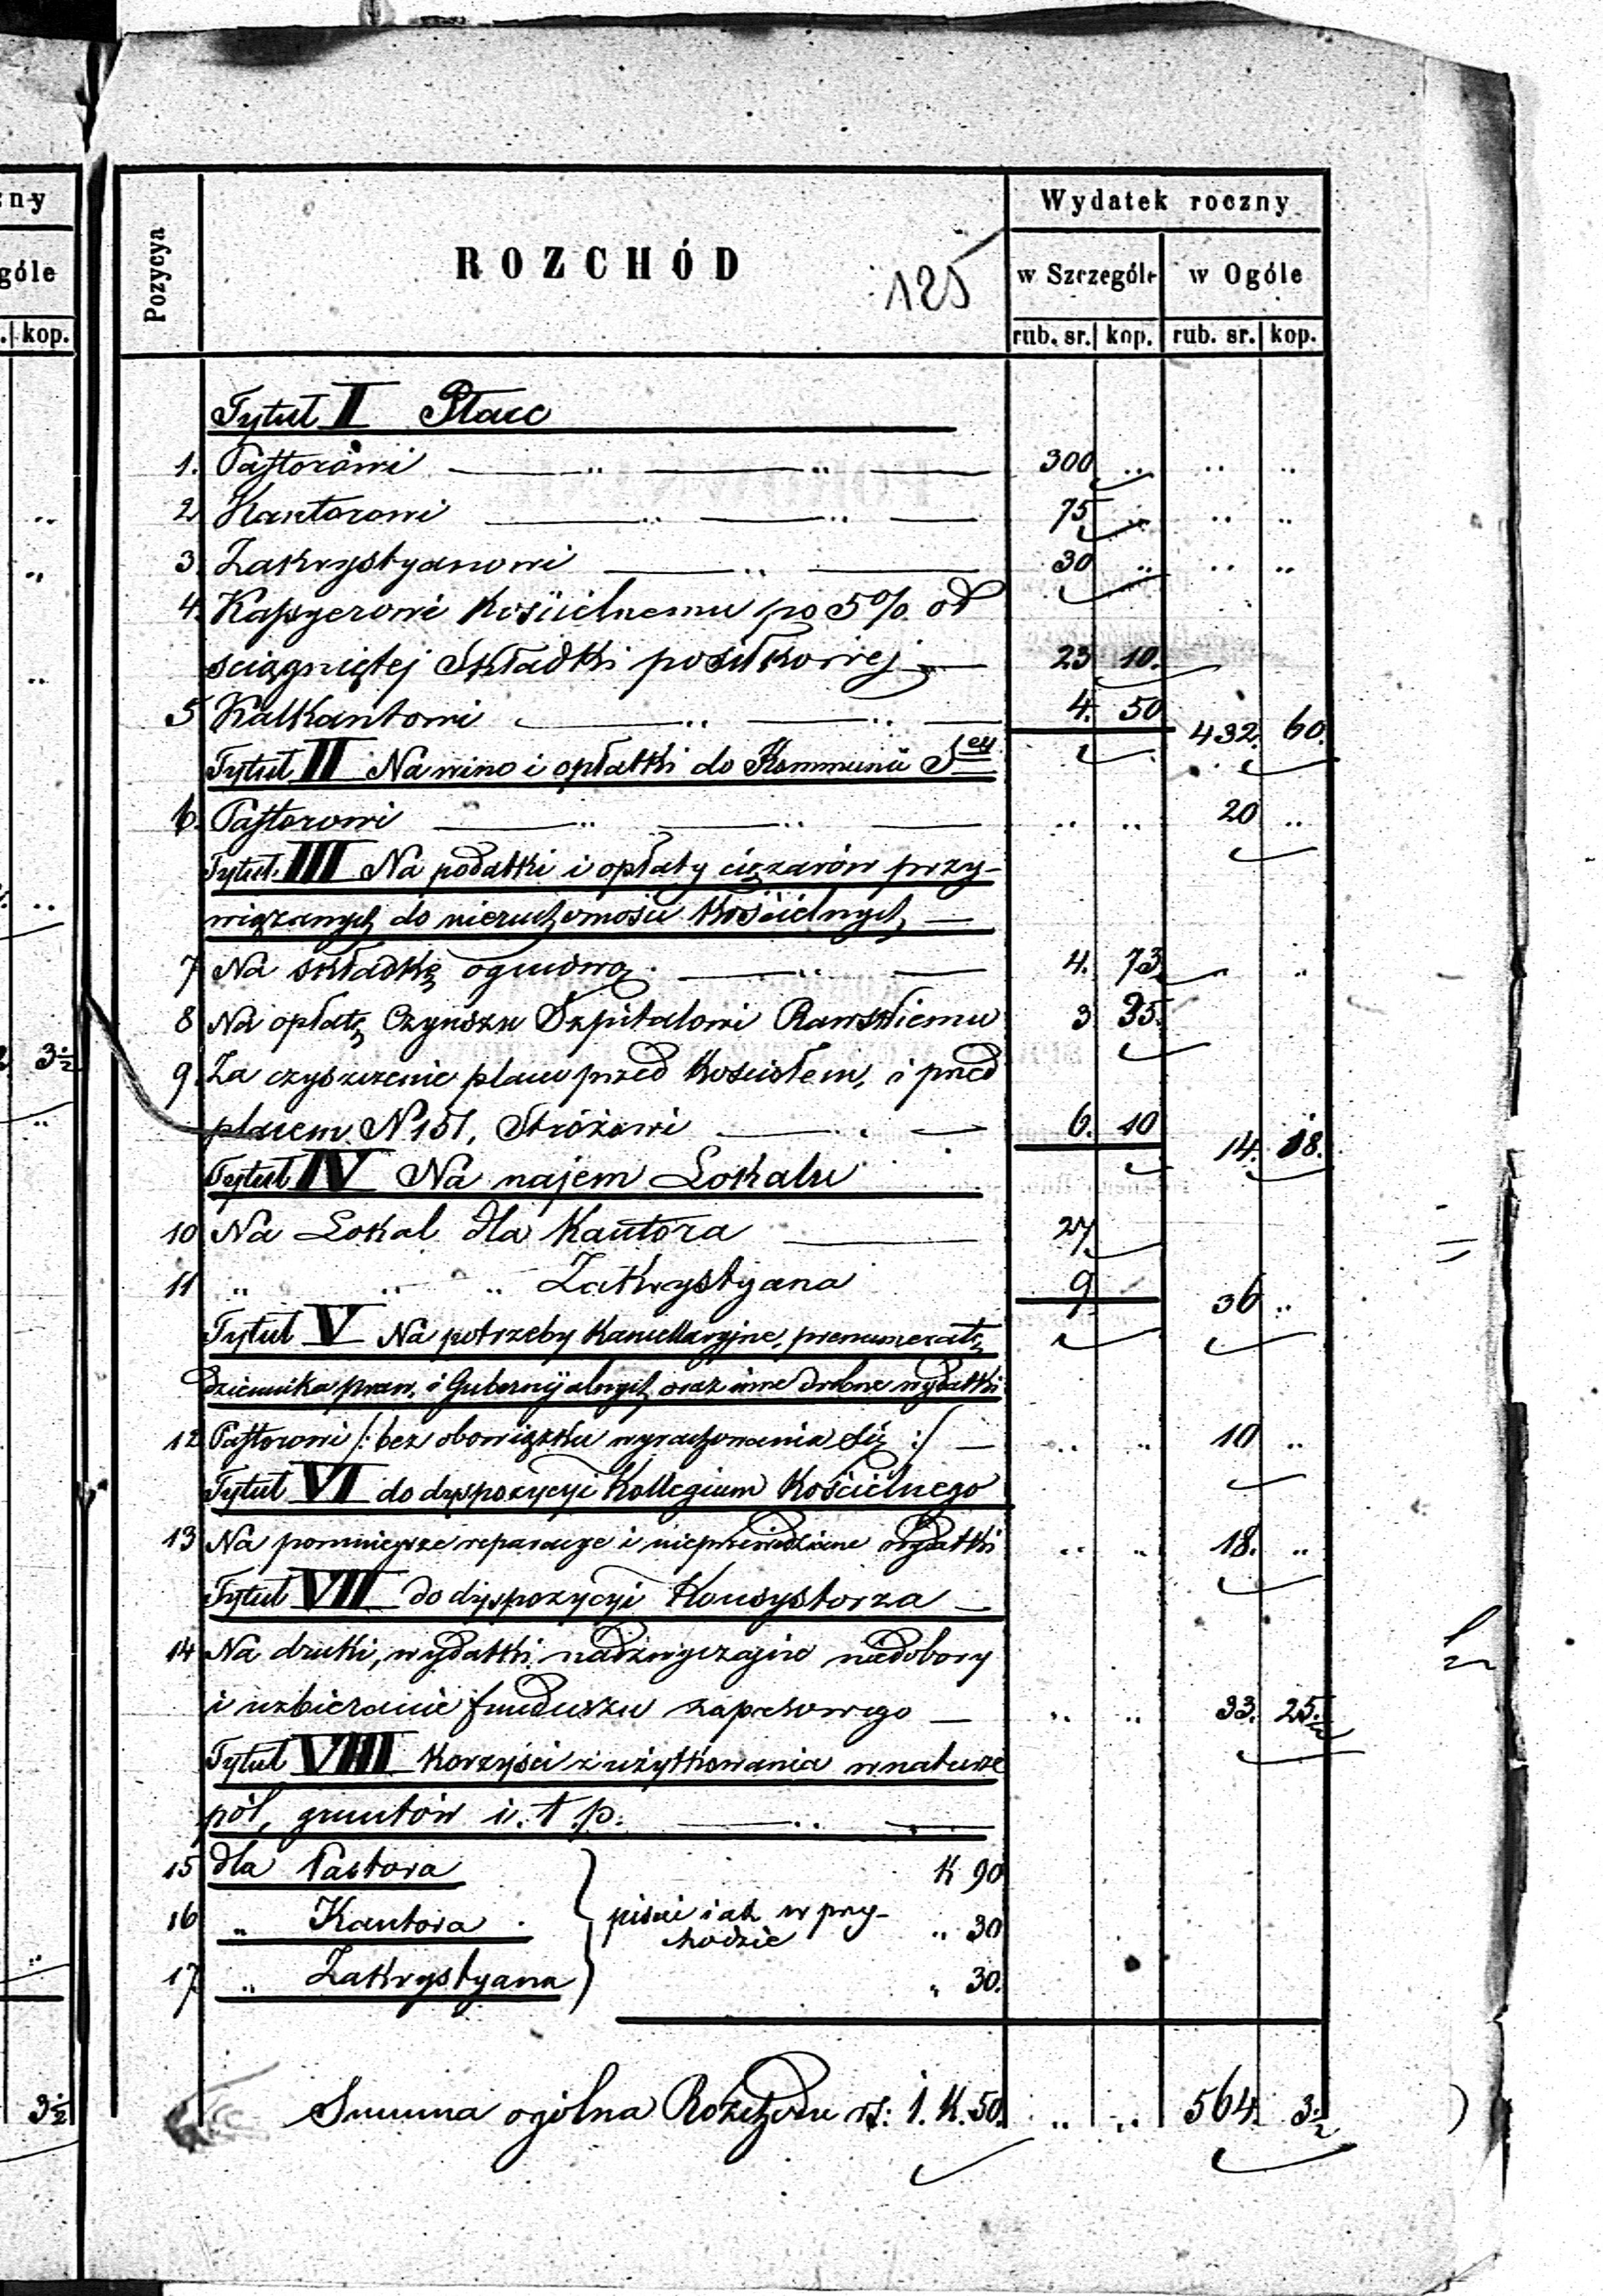 zny
góle
kop.
3 1/2
3 1/2
Pozycya
ROZCHÓD
125
Wydatek roczny
w Szczególe
w Ogóle
rub. sr. kop. rub. sr. kop.
Tytuł I Płace
1. Pastorowi — „ — „ — 300 „ „ „
2. Kantorowi — „ — „ — 75 „ „ „
3. Zakrystyanowi — „ — 30 „ „ „
4. Kassyerowi kościelnemu po 5% od
ściągniętej składki posiłkowej — 23 10.
5 Kalkantowi — „ — „ — 4. 50 432. 60.
Tytuł II Na wino i opłatki do Kommunii Stey
6. Pastorowi — „ — „ — „ „ 20 „
Tytuł III Na podatki i opłaty ciężarów przy-
wiązanych do nieruchomości Kościelnych —
7 Na składkę ogniową. — „ — 4. 73 „ „
8 Na opłatę Czynszu Szpitalowi Rawskiemu 3 35.
9. Za czyszczenie placu przed Kościołem, i przed
placem N 151, Stróżowi — 6. 10 14. 18.
Tytuł IV Na najem Lokalu
10 Na Lokal dla Kantora — 27
11 „ „ „ Zakrystyana 9 36 „
Tytuł V Na potrzeby Kancellaryjne, prenumeratę
dziennika praw. i Gubernijalnych oraz inne drobne wydatki
12 Pastorowi /: bez obowiązku wyrachowania się :/ — „ „ 10 „
Tytuł VI do dyspozycyi Kollegium Kościelnego
13 Na pomniejsze reparacye i nieprzewidziane wydatki „ „ 18. „
Tytuł VII do dyspozycyi Konsystorza —
14 Na druki, wydatki nadzwyczajne niedobory
i uzbieranie funduszu zapasowego — „ „ 33. 25 1/2
Tytuł VIII Korzyści z użytkowania w naturze
pól, gruntów i. t. p. — „ —
15 dla Pastora K 90
16 „ Kantora . pisać jak w przy- „ 30
chodzie
17 „ Zakrystyana „ 30.
Summa ogólna Rozchodu rs: 1. K. 50. „ „ 564. 3 1/2